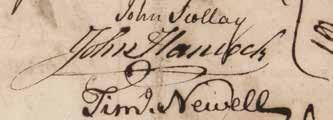 John Scollay
John Hancock
Timo. Newell